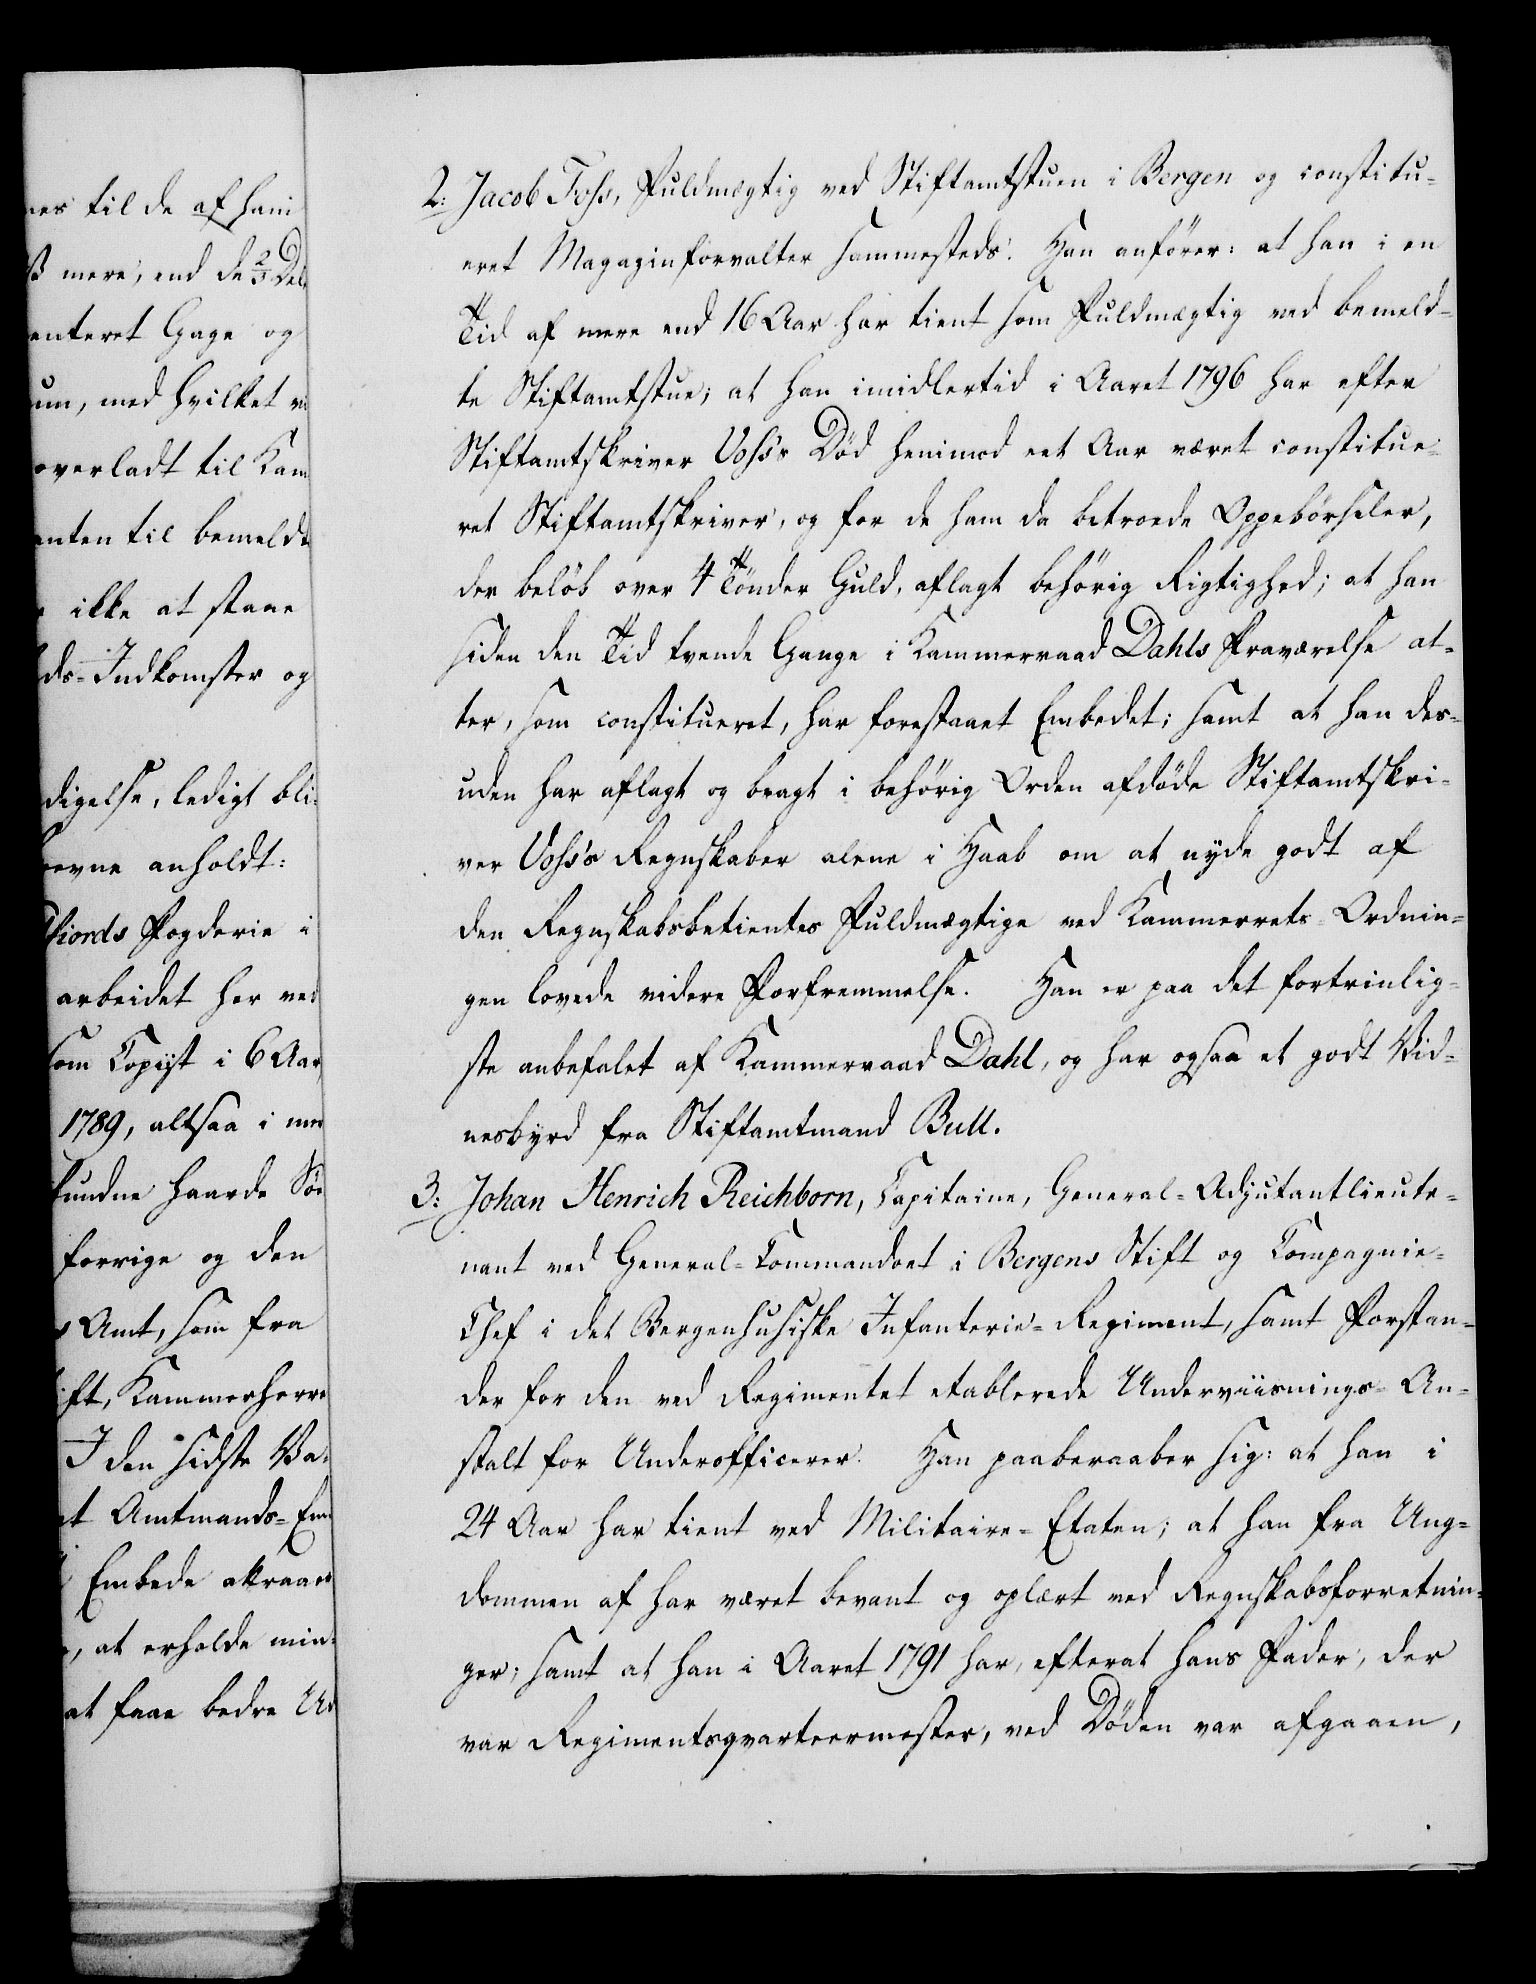 nes til de af ham
mere, end de 2/3 Dele
enteret Gage og
um, med hvilket
overladt til Kam
enten til bemeldte
ikke at staae
ds-Indkomster og
digelse, ledigt bli-
evne anholdt:
fiords Fogderie i
arbeidet her ved
som Copiist i 6 Aar,
1789, altsaa i
fundne haarde
forrige og den
Amt, som fra
ift, Kammerherre
I den sidste Va-
et Amtmands-Em
Embede attraaer
, at erholde min-
at faae bedre Ud
2: Jacob Foss, Fuldmægtig ved Stiftamtstuen i Bergen og constitu-
eret Magazinforvalter sammesteds. Han anfører: at han i en
Tid af mere end 16 Aar har tient som Fuldmægtig ved bemeld-
te Stiftamtstue; at han imidlertid i Aaret 1796 har efter
Stiftamtskriver Voss's Død henimod eet Aar været constitue-
ret Stiftamtskriver, og for de ham da betroede Oppebørseler,
der beløb over 4 Tønder Guld, aflagt behørig Rigtighed; at han
siden den Tid tvende Gange i Kammerraad Dahls Fraværelse at-
ter, som constitueret, har forestaaet Embedet; samt at han des-
uden har aflagt og bragt i behørig Orden afdøde Stiftamtskri-
ver Voss's Regnskaber alene i Haab om at nyde godt af
den Regnskabsbetientes Fuldmægtige ved Kammerrets-Ordnin-
gen lovede videre Forfremmelse. Han er paa det fortrinlig-
ste anbefalet af Kammerraad Dahl, og har ogsaa et godt Vid-
nesbyrd fra Stiftamtmand Bull.
3: Johan Henrich Reichborn, Capitaine, General-Adjutantlieute-
nant ved General-Commandoet i Bergens Stift og Compagnie-
Chef i det Bergenhusiske Infanterie-Regiment, samt Forstan-
der for den ved Regimentet etablerede Underviisnings-An-
stalt for Underofficerer. Han paaberaaber sig: at han i
24 Aar har tient ved Militaire-Etaten; at han fra Ung-
dommen af har været bevant og oplært ved Regnskabsforretnin-
ger; samt at han i Aaret 1791 har, efterat hans Fader, der
var Regimentsqvarteermester, ved Døden var afgaaen,